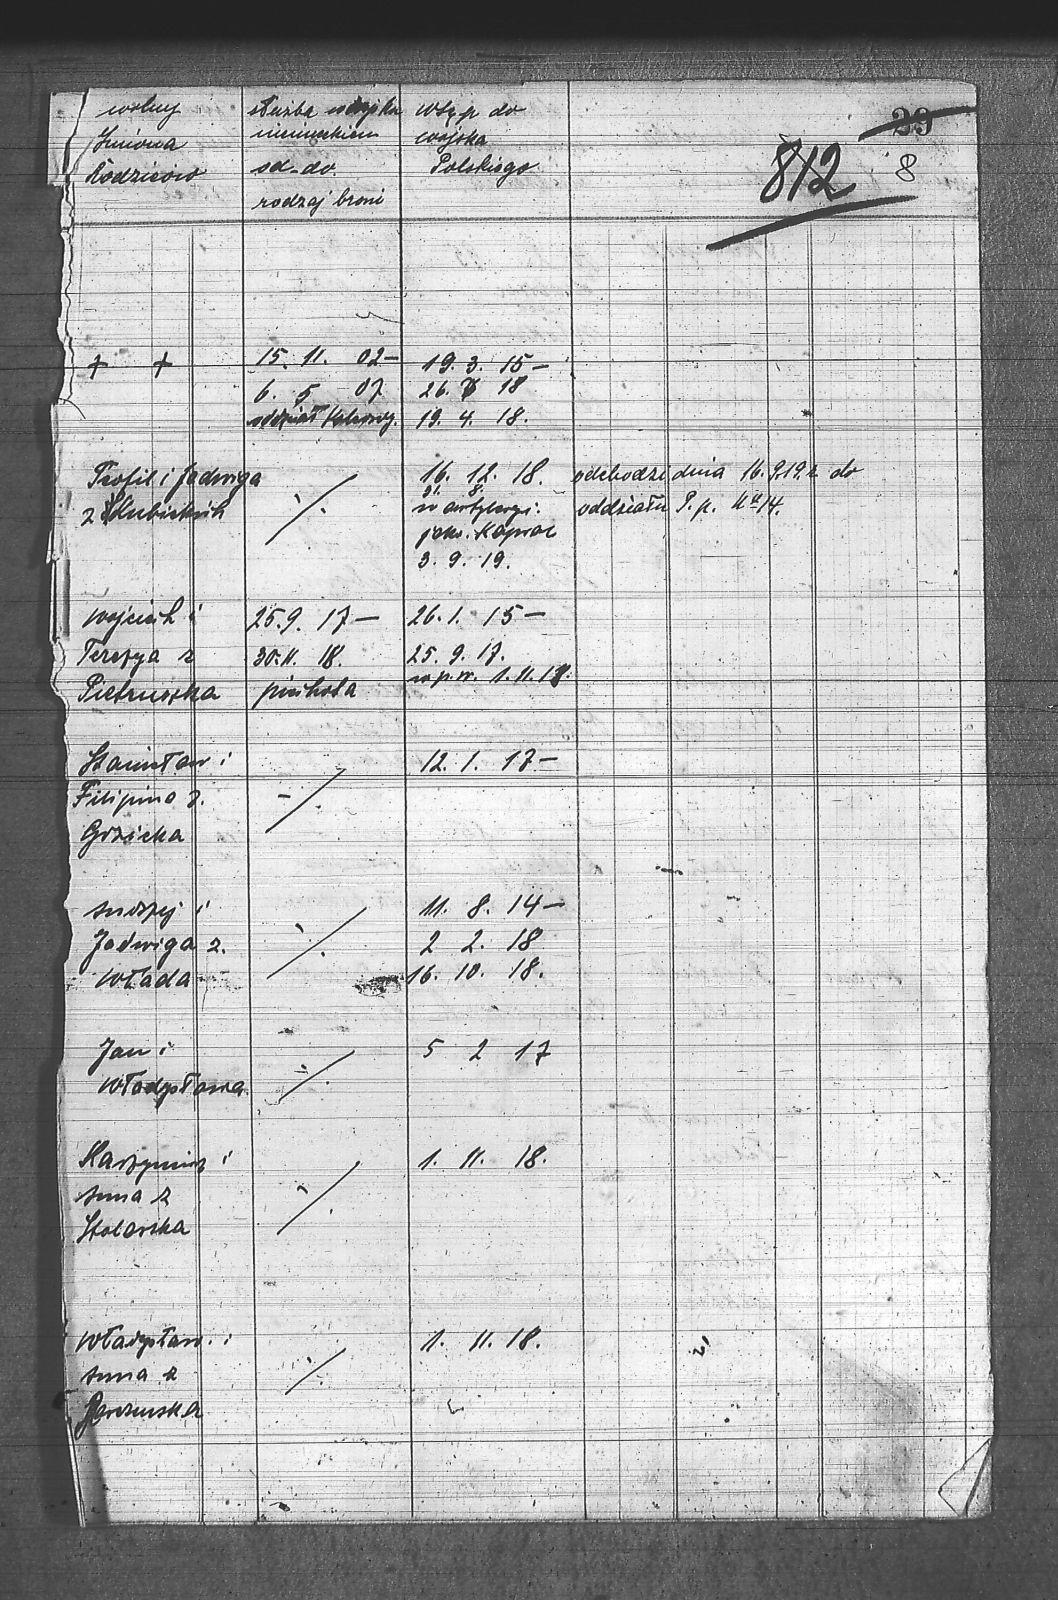 wolny
Imiona
Rodziców
służba wojska
niemieckiem
od-do
rodzaj broni
Wstęp do
wojska
Polskiego
29
812 8
+ +
15. 11. 02-
6. 5 07
oddział
19. 3. 15-
26. 18
19. 4. 18.
Teofil i Jadwiga
z
16. 12. 18.
w artylerji.
jako
3. 9. 19.
odchodzi dnia 16. 9.19. z do
oddziału P. p. 14.
Wojciech i
Teresya z
Pietruszka
25.9. 17-
30.11. 18.
piechota
26.1. 15-
25. 9. 17.
w p. w. 1. 11. 18.
Stanisław i
Filipina z.
12. 1. 17-
Andrzej i
Jadwiga z.
Włada
11. 8. 14-
2 2. 18
16. 10. 18.
Jan i
Władysława
5 2 17
Kazymierz i
Anna z
Stolarska
1. 11. 18.
Władysław i
Anna z
1. 11. 18.